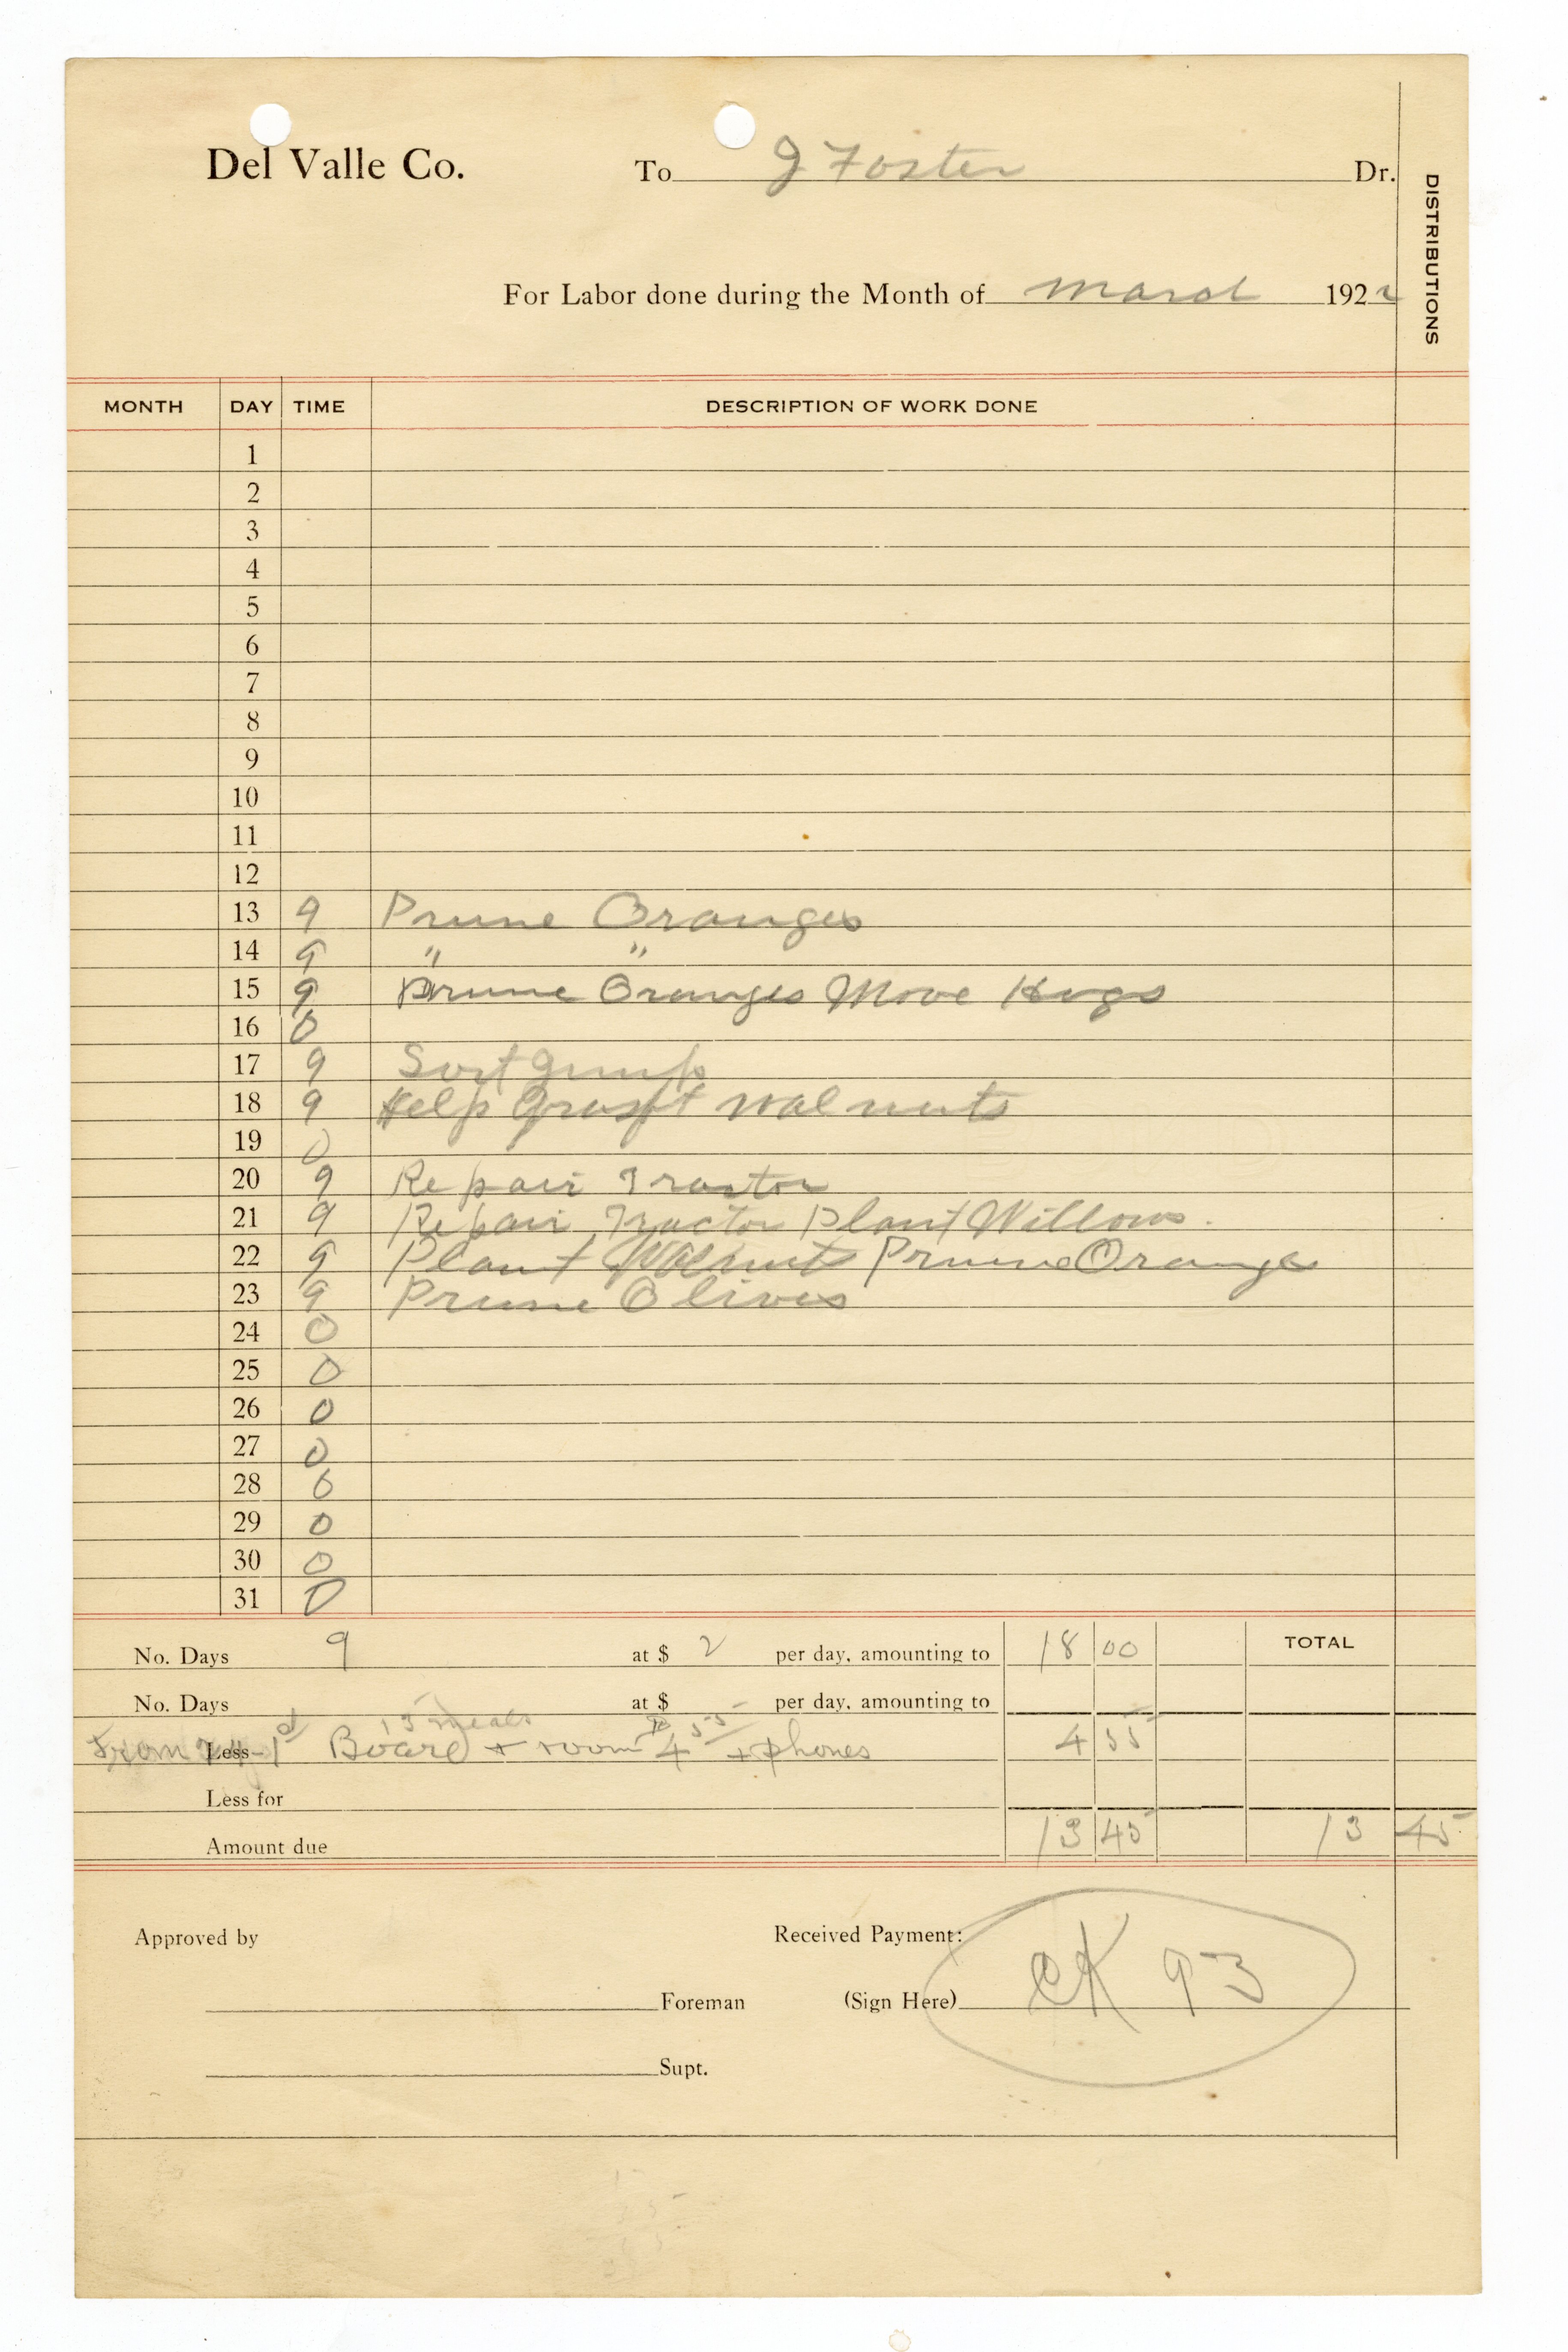 Del Valle Co. To J Foster Dr.
DISTRIBUTIONS
For Labor done during the Month of March 1922
MONTH DAY TIME DESCRIPTION OF WORK DONE
1
2
3
4
5
6
7
8
9
10
11
12
13 9 Prune Oranges
14 9 " "
15 9 Prune Oranges Move Hogs
16 0
17 9 Sort
18 9 Help Graft walnuts
19 0
20 9 Repair Tractor
21 9 Repair Tractor Plant Willows.
22 9 Plant Walnuts Prune Orange
23 9 Prune Olives
24 0
25 0
26 0
27 0
28 0
29 0
30 0
31 0
No. Days 9 at $ 2 per day, amounting to 18 00 TOTAL
No. Days at $ per day, amounting to
13 meals
From Less Board + room 4 55 + phones 4 55
Less for
Amount due 13 45 13 45
Approved by Received Payment:
Foreman (Sign Here) CK 93
Supt.